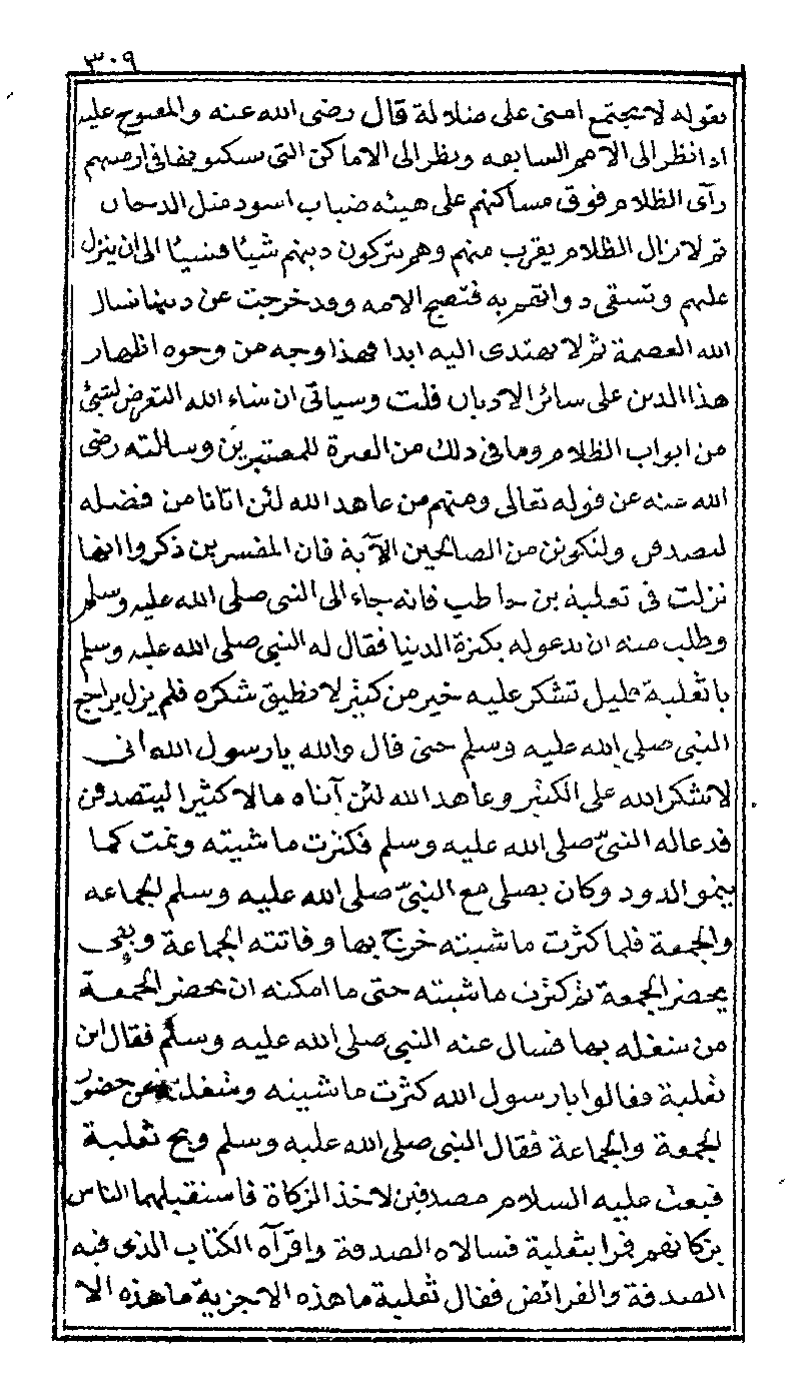 ٣٠٩
بقوله لا تجتمع امتى على ضلالة قال رضى الله عنه والمفتوح عليه
اذا نظر الى الامم السابقه ونظر الى الاماكن التى يسكنونها فى ارضهم
رآى الظلام فوق مساكنهم على هيئه ضباب اسود مثل الدخان
ثم لا يزال الظلام يقرب منهم وهم يتركون دينهم شيئا فشيئا الى ان ينزل
عليهم وتسقى ذواتهم به فتصبح الامه وقد خرجت عن دينها نسال
الله العصمة ثم لا يهتدى اليه ابدا فهذا وجه من وجوه اظهار
هذا الدين على سائر الاديان قلت وسياتى ان شاء الله التعرض لشئ
من ابواب الظلام وما فى ذلك من العبرة للمعتبرين وسالته رضى
الله عنه عن قوله تعالى ومنهم من عاهد الله لئن اتانا من فضله
لنصدقن ولنكونن من الصالحين الآية فان المفسرين ذكروا انها
نزلت فى ثعلبة بن حاطب فانه جاء الى النبى صلى الله عليه وسلم
وطلب منه ان يدعو له بكثرة الدنيا فقال له النبى صلى الله عليه وسلم
يا ثعلبة قليل تشكر عليه خير من كثير لا تطيق شكره فلم يزل يراجع
النبى صلى الله عليه وسلم حتى قال والله يا رسول الله انى
لاشكر الله على الكثير وعاهد الله لئن آتاه مالا كثيرا ليتصدقن
فدعا له النبىّ صلى الله عليه وسلم فكثرت ماشيته ونمت كما
ينمو الدود وكان يصلى مع النبىّ صلى الله عليه وسلم الجماعه
والجمعة فلما كثرت ماشيته خرج بها وفاتته الجماعة وبقى
يحضر الجمعة ثم كثرت ماشيته حتى ما امكنه ان يحضر الجمعة
من شغله بها فسال عنه النبى صلى الله عليه وسلم فقال اين
ثعلبة فقالوا يا رسول الله كثرت ماشيته وشغلته عن حضور
الجمعة والجماعة فقال النبى صلى الله عليه وسلم ويح ثعلبة
فبعث عليه السلام مصدقين لاخذ الزكاة فاستقبلهما الناس
بزكاتهم فمرا بثعلبة فسالاه الصدقة واقرآه الكتاب الذى فيه
الصدقة والفرائض فقال ثعلبة ما هذه الا جزية ما هذه الا